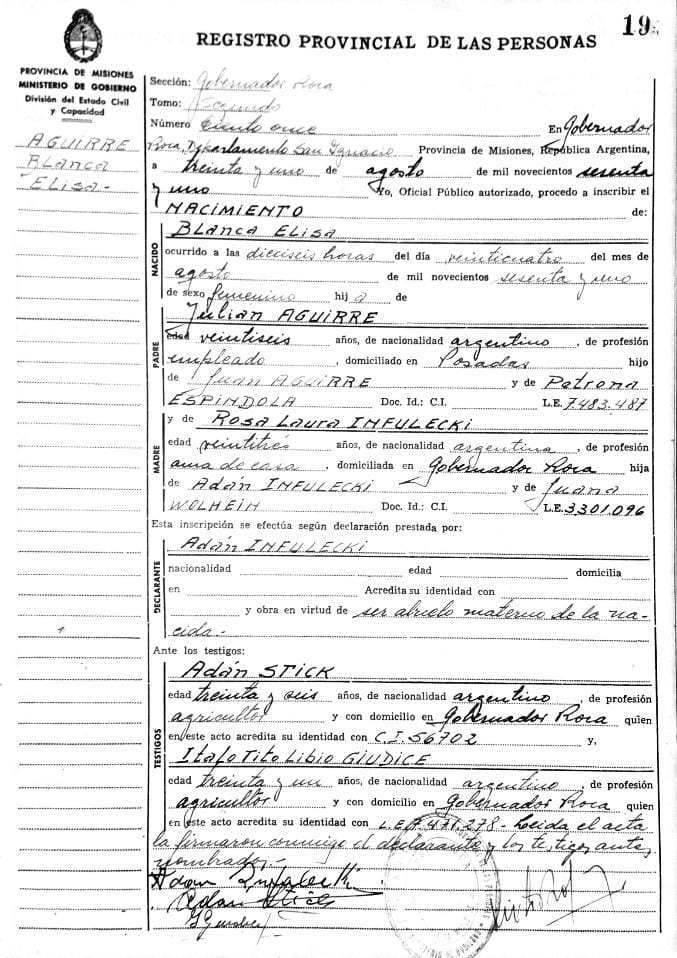 19
REGISTRO PROVINCIAL DE LAS PERSONAS
PROVINCIA DE MISIONES
MINISTERIO DE GOBIERNO
División del Estado Civil
y Capacidad
AGUIRRE
BLANCA
ELISA.-
Sección: Gobernador Roca
Tomo: Segundo
Número ciento once En Gobernador
Roca, Departamento San Ignacio Provincia de Misiones, República Argentina,
a treinta y uno de agosto de mil novecientos sesenta
y uno Yo, Oficial Público autorizado, procedo a inscribir el
NACIMIENTO de:
NACIDO
Blanca ELISA
ocurrido a las dieciseis horas del día veinticuatro del mes de
agosto de mil novecientos sesenta y uno
de sexo femenino hija de
PADRE
Julian AGUIRRE
edad veintiseis años, de nacionalidad argentino, de profesión
empleado, domiciliado en Posadas hijo
de Juan AGUIRRE y de Patrona
ESPINDOLA Doc. Id.: C.I. L.E. 7.483.487
MADRE
y de Rosa Laura INFULECKI
edad veintitrés años, de nacionalidad argentina, de profesión
ama de casa, domiciliada en Gobernador Roca hija
de Adán INFULECKI y de Juana
WOLHEIN Doc. Id.: C.I. L.E. 3.301.096
Esta inscripción se efectúa según declaración prestada por:
DECLARANTE
Adán INFULECKI
nacionalidad edad domicilia
en Acredita su identidad con
y obra en virtud de ser abuelo materno de la na-
cida.-
Ante los testigos:
TESTIGOS
Adán STICK
edad treinta y seis años, de nacionalidad argentino, de profesión
agricultor y con domicilio en Gobernador Roca quien
en este acto acredita su identidad con C.I. 56702 y,
Italo Tito Libio GIUDICE
edad treinta y un años, de nacionalidad argentino, de profesión
agricultor y con domicilio en Gobernador Roca quien
en este acto acredita su identidad con L.E. 7.471.278- Leida el acta
la firmaron conmigo el declarante y los testigos ante
nombrados.-
Adan Infulecki
Adan Stick